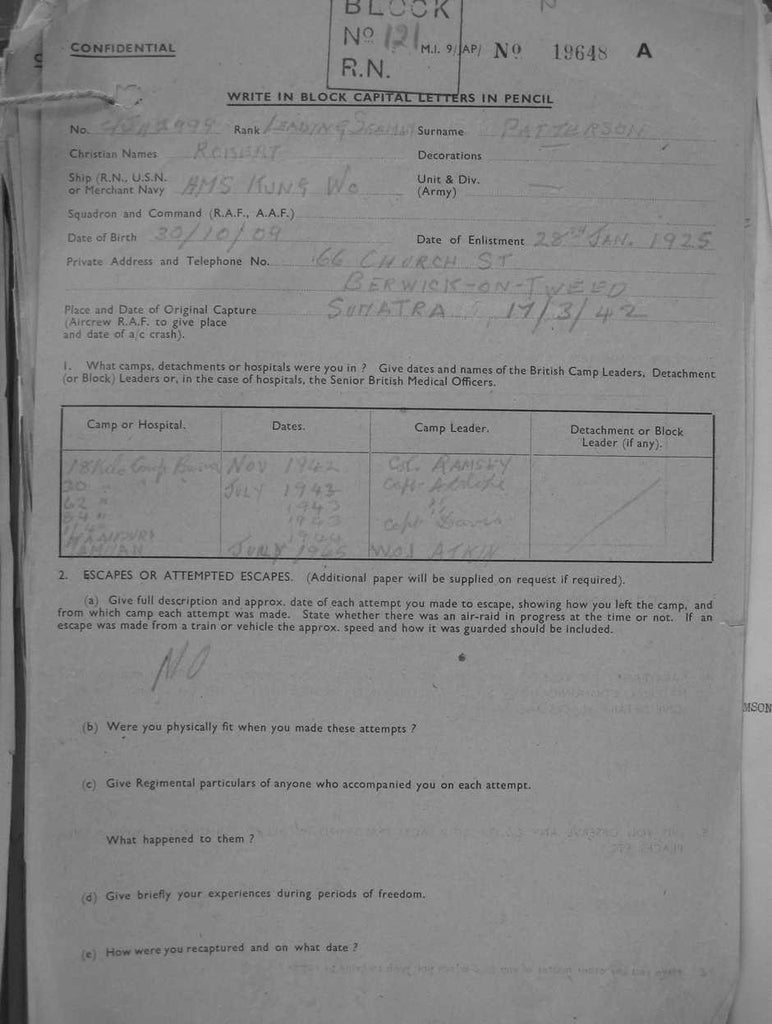 BLOCK
Nº 121
R.N.
CONFIDENTIAL
M.I. 9/JAP/ Nº 19648 A
WRITE IN BLOCK CAPITAL LETTERS IN PENCIL
No. Rank LEADING SEAMAN Surname PATTERSON
Christian Names ROBERT Decorations
Ship (R.N., U.S.N. or Merchant Navy HMS KUNG WO Unit & Div. (Army)
Squadron and Command (R.A.F., A.A.F.)
Date of Birth 30/10/09 Date of Enlistment 28TH JAN. 1925
Private Address and Telephone No. 66 CHURCH ST
BERWICK-ON-TWEED
Place and Date of Original Capture SUMATRA 17/3/42
(Aircrew R.A.F. to give place
and date of a/c crash).
1. What camps, detachments or hospitals were you in ? Give dates and names of the British Camp Leaders, Detachment
(or Block) Leaders or, in the case of hospitals, the Senior British Medical Officers.
Camp or Hospital. Dates. Camp Leader. Detachment or Block
Leader (if any).
18 Kilo Camp Burma NOV 1942 Col. RAMSEY
30 " JULY 1943 Capt
62 " 1943 "
84 " 1943 Capt Davis
1944
JUNE 1945 W.O.1 ATKIN
2. ESCAPES OR ATTEMPTED ESCAPES. (Additional paper will be supplied on request if required).
(a) Give full description and approx. date of each attempt you made to escape, showing how you left the camp, and
from which camp each attempt was made. State whether there was an air-raid in progress at the time or not. If an
escape was made from a train or vehicle the approx. speed and how it was guarded should be included.
NO
MSON
(b) Were you physically fit when you made these attempts ?
(c) Give Regimental particulars of anyone who accompanied you on each attempt.
What happened to them ?
(d) Give briefly your experiences during periods of freedom.
(e) How were you recaptured and on what date ?